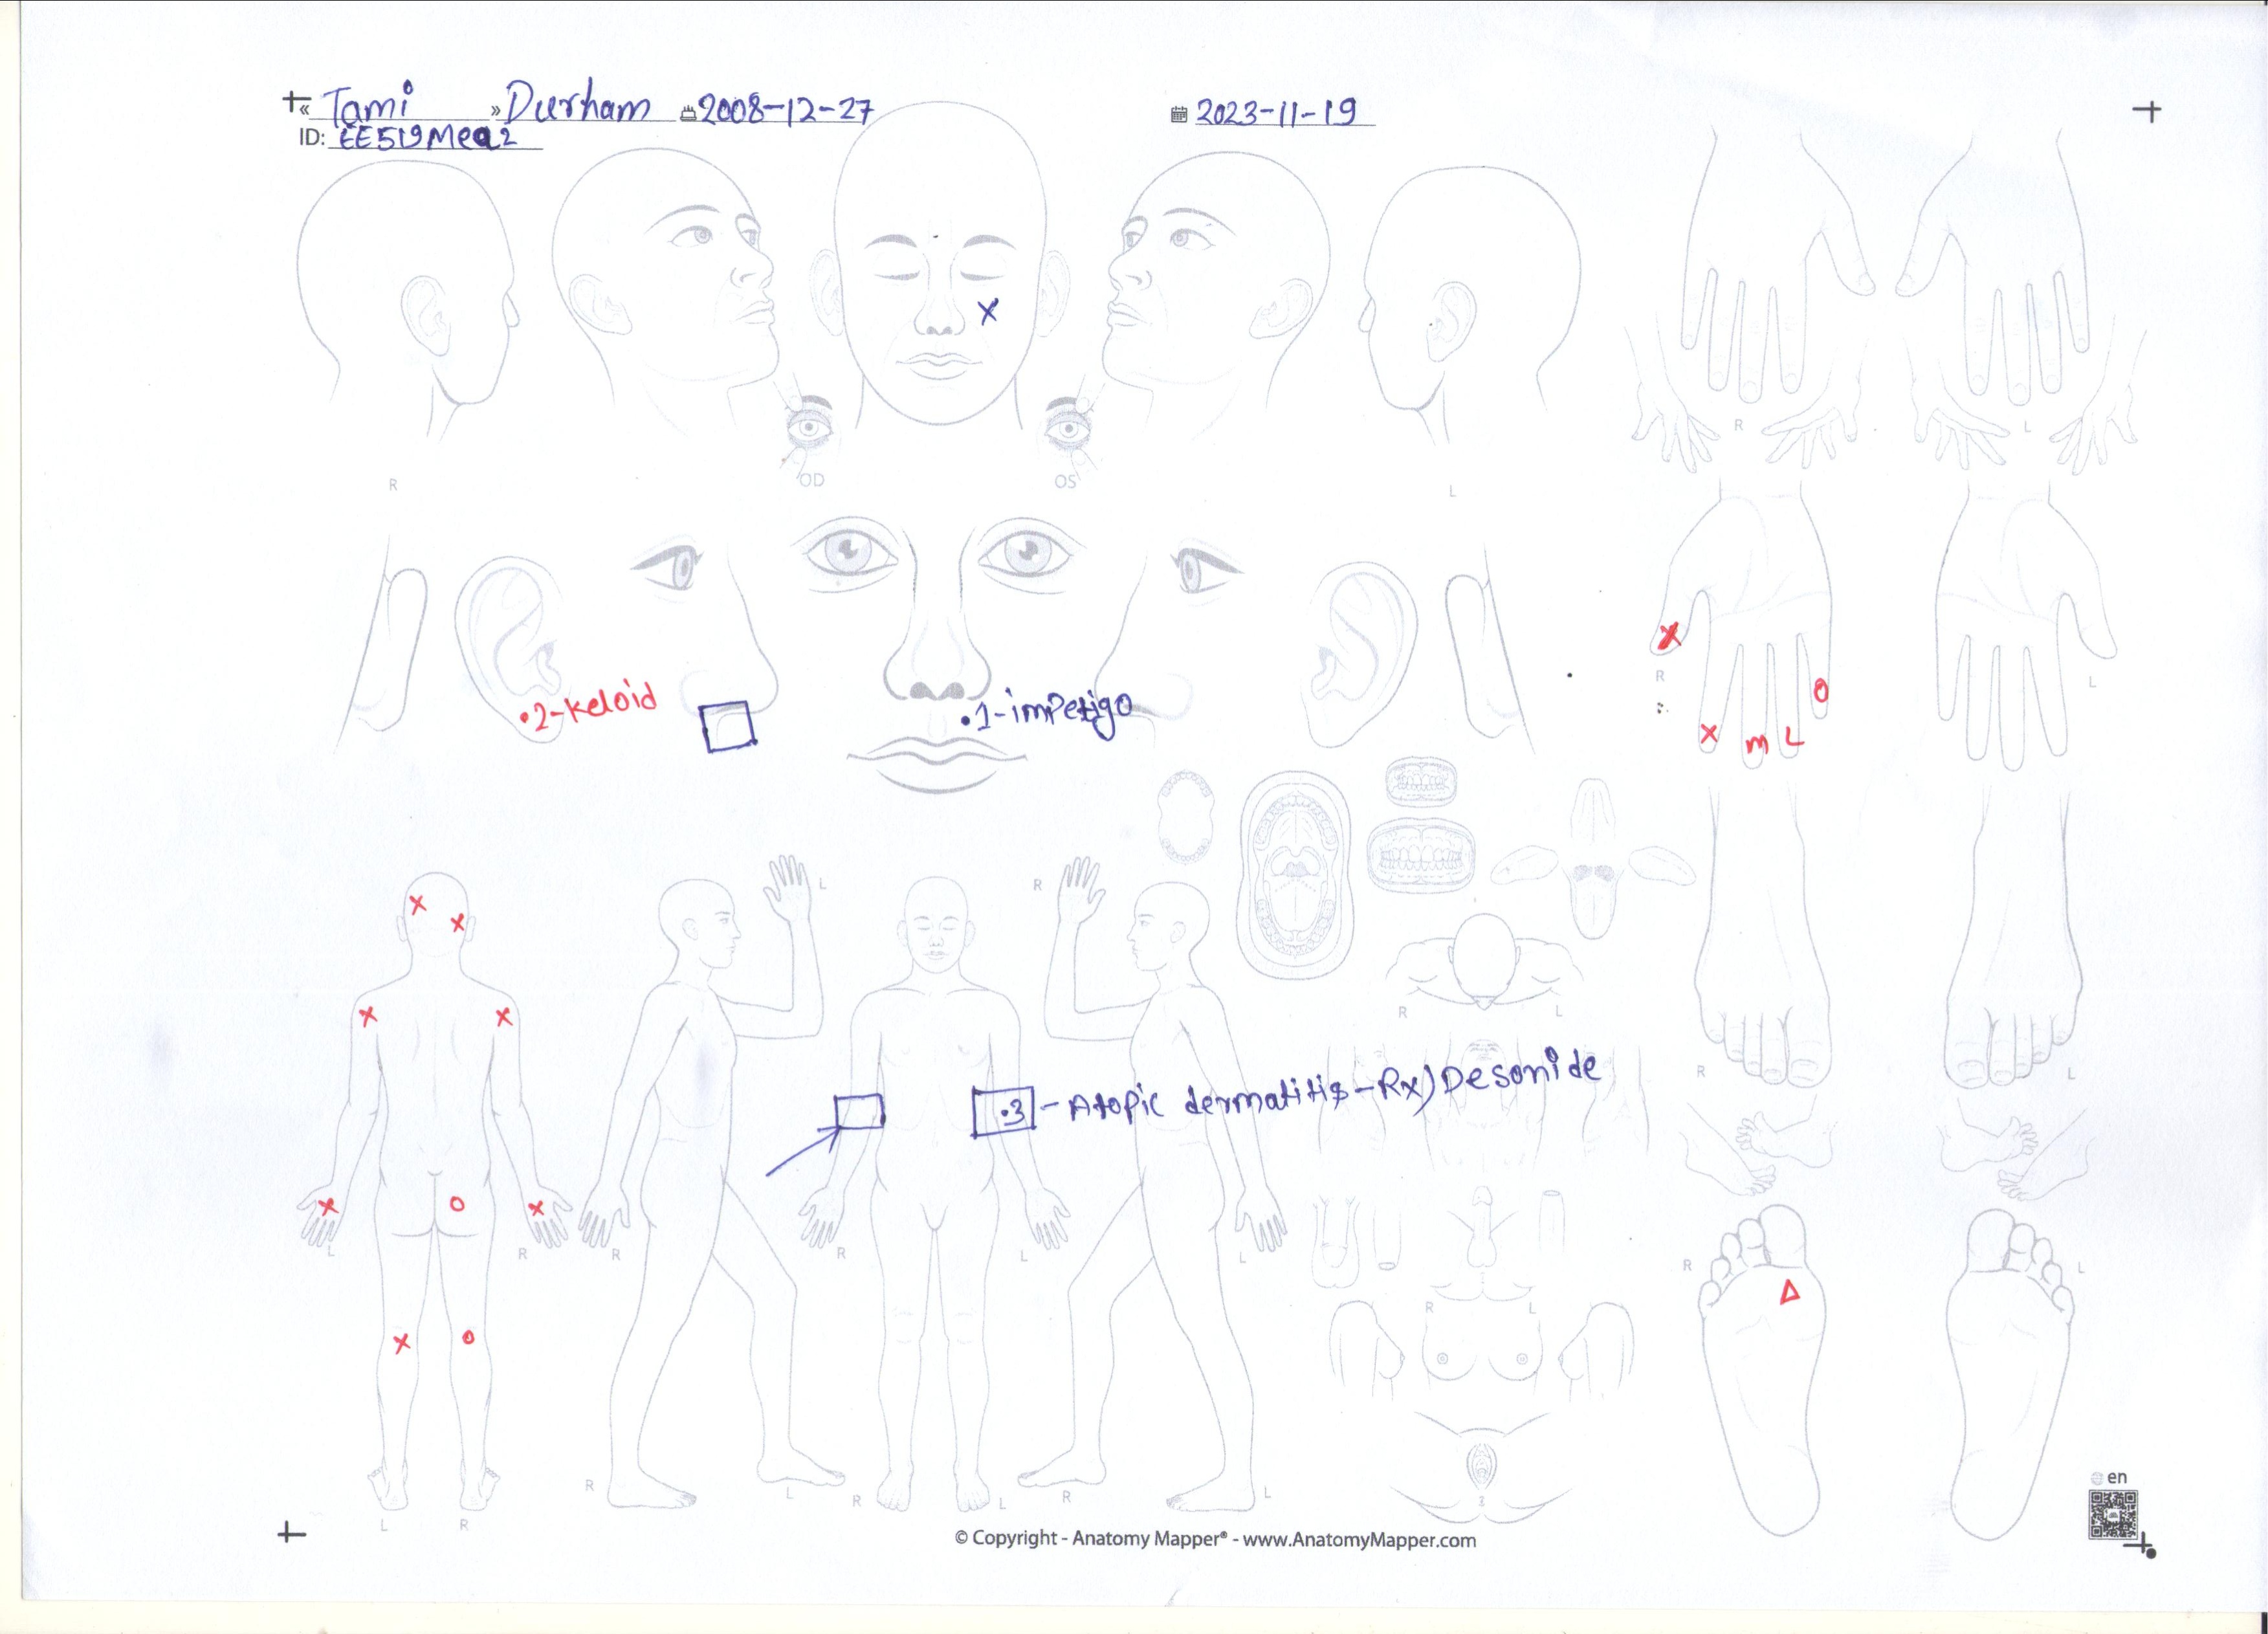 « Tami » Durham 2008-12-27 2023-11-19
ID: EE519Mea2
X
R L
OD OS
R L
R L
•2-keloid
•1-impetigo
X O
X m L
L R
X X
X X
R L
R L
•3-Atopic dermatitis-Rx) Desonide
X O X
L R R R L L
X O
R L
R L
Δ
R L R L R L
L R
en
© Copyright - Anatomy Mapper® - www.AnatomyMapper.com